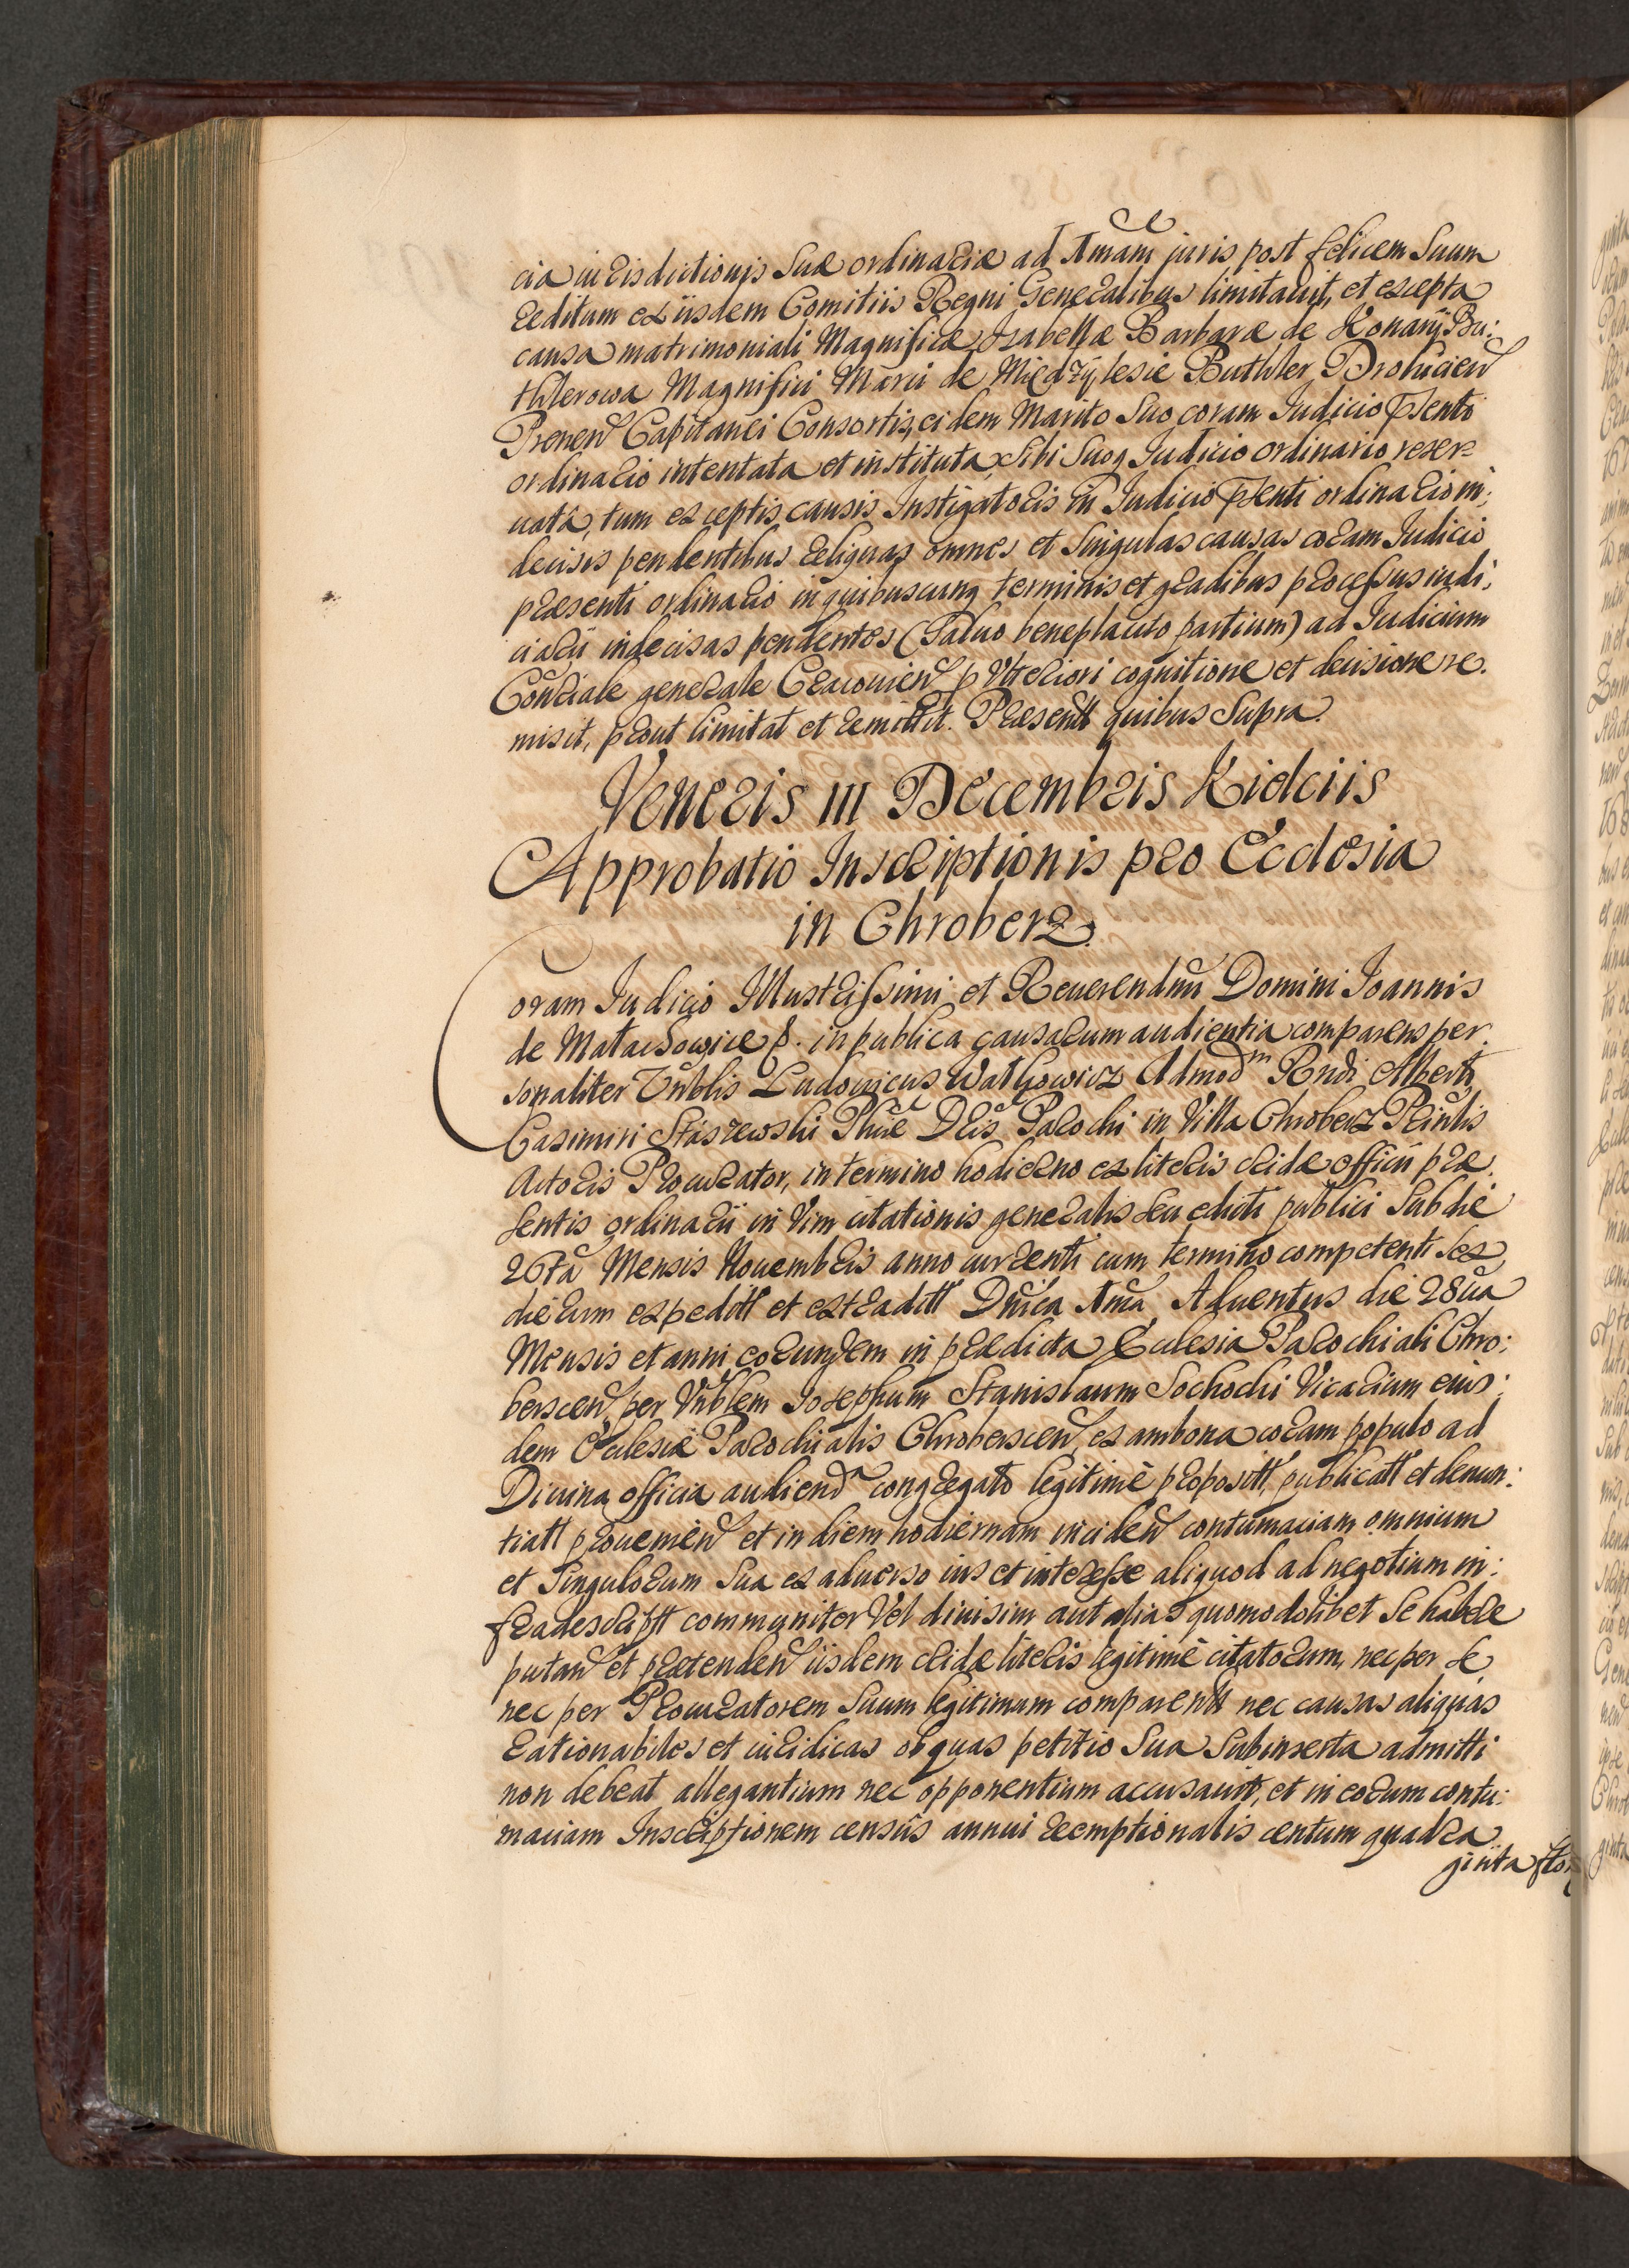 cia iurisdictionis suae ordinariae ad Amam iuris post felicem Suum
reditum ex iisdem Comitiis Regni Generalibus limitauit, et excepta
causa matrimoniali Magnificae Izabellae Barbarae de Konary Bu:
thlerowa Magnifici Marci de Międzÿlesie Buthler Drohicien
Prenen Capitanei Consortis, eidem Marito Suo coram Iudicio Pnti
ordinario intentata et instituta, Sibi Suoq Iudicio ordinario reser-
uata, tum exceptis causis Instigatoris in Iudicio Pnti ordinario in:
decisis pendentibus reliquas omnes et Singulas causas coram Iudicio
praesenti ordinario in quibuscunq terminis et gradibus processus iudi:
ciarij indecisas pendentes (Saluo beneplacito partium) ad Iudicium
Conrale generale Cracouien p Vlteriori cognitione et decisione re.
misit, prout limitat et remittit. Praesentt quibus Supra.
Veneris III Decembris Kielciis
Approbatio Inscriptionis pro Ecclesia
in Chroberz.
Coram Iudicio Illustrissimi et Reuerendmi Domini Ioannis
de Małachowice &. in publica causarum audientia comparens per.
sonaliter Vnblis Ludouicus Wałkowicz Admodm Rndi Alberti
Casimiri Staszewski Phiae Dris Parochi in Villa Chroberz Prinlis
Actoris Procurator, in termino hodierno ex literis cridae officii prae.
sentis ordinarii in Vim citationis generalis seu edicti publici Sub die
26ta Mensis Nouembris anno currenti cum termino competenti sex
dierum expeditt et extraditt Dnica Ama Aduentus die 28ua
Mensis et anni eorundem in praedicta Ecclesia Parochiali Chro:
berscen, per Vnblem Iosephum Stanisłaum Sochocki Vicarium eius:
dem Ecclesiae Parochialis Chroberscen, ex ambona coram populo ad
Diuina officia audiend congregato legitimè propositt, publicatt et denun:
tiatt prouenien et in diem hodiernam inciden contumaciam omnium
et Singulorum Sua ex aduerso ius et interesse aliquod ad negotium in:
frades­criptt communiter Vel diuisim aut alias quomodolibet Se habere
putan et praetenden iisdem cridae literis legitimè citatorum, nec per se
nec per Procuratorem Suum legitimum comparentt nec causas aliquas
rationabiles et iuridicas ob quas petitio Sua Subinserta admitti
non debeat allegantium nec opponentium accusauit, et in eorum contu:
maciam Inscriptionem censûs annui reemptionalis centum quadra
ginta flor